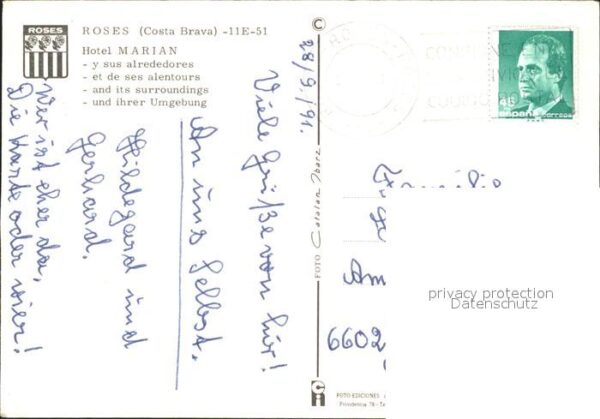 ROSES
ROSES (Costa Brava) -11E-51
Hotel MARIAN
- y sus alrededores
- et de ses alentours
- and its surroundings
- und ihrer Umgebung
28/9./91.
Viele Grüße von hier!
An uns selbst.
Hildegard und
Gerhard.
Wer ist eher da,
Die Karte oder wir!
©
FOTO Catalan Ibarz
FOTO EDICIONES
48
España
correos
Familie
Am
6602
privacy protection
Datenschutz